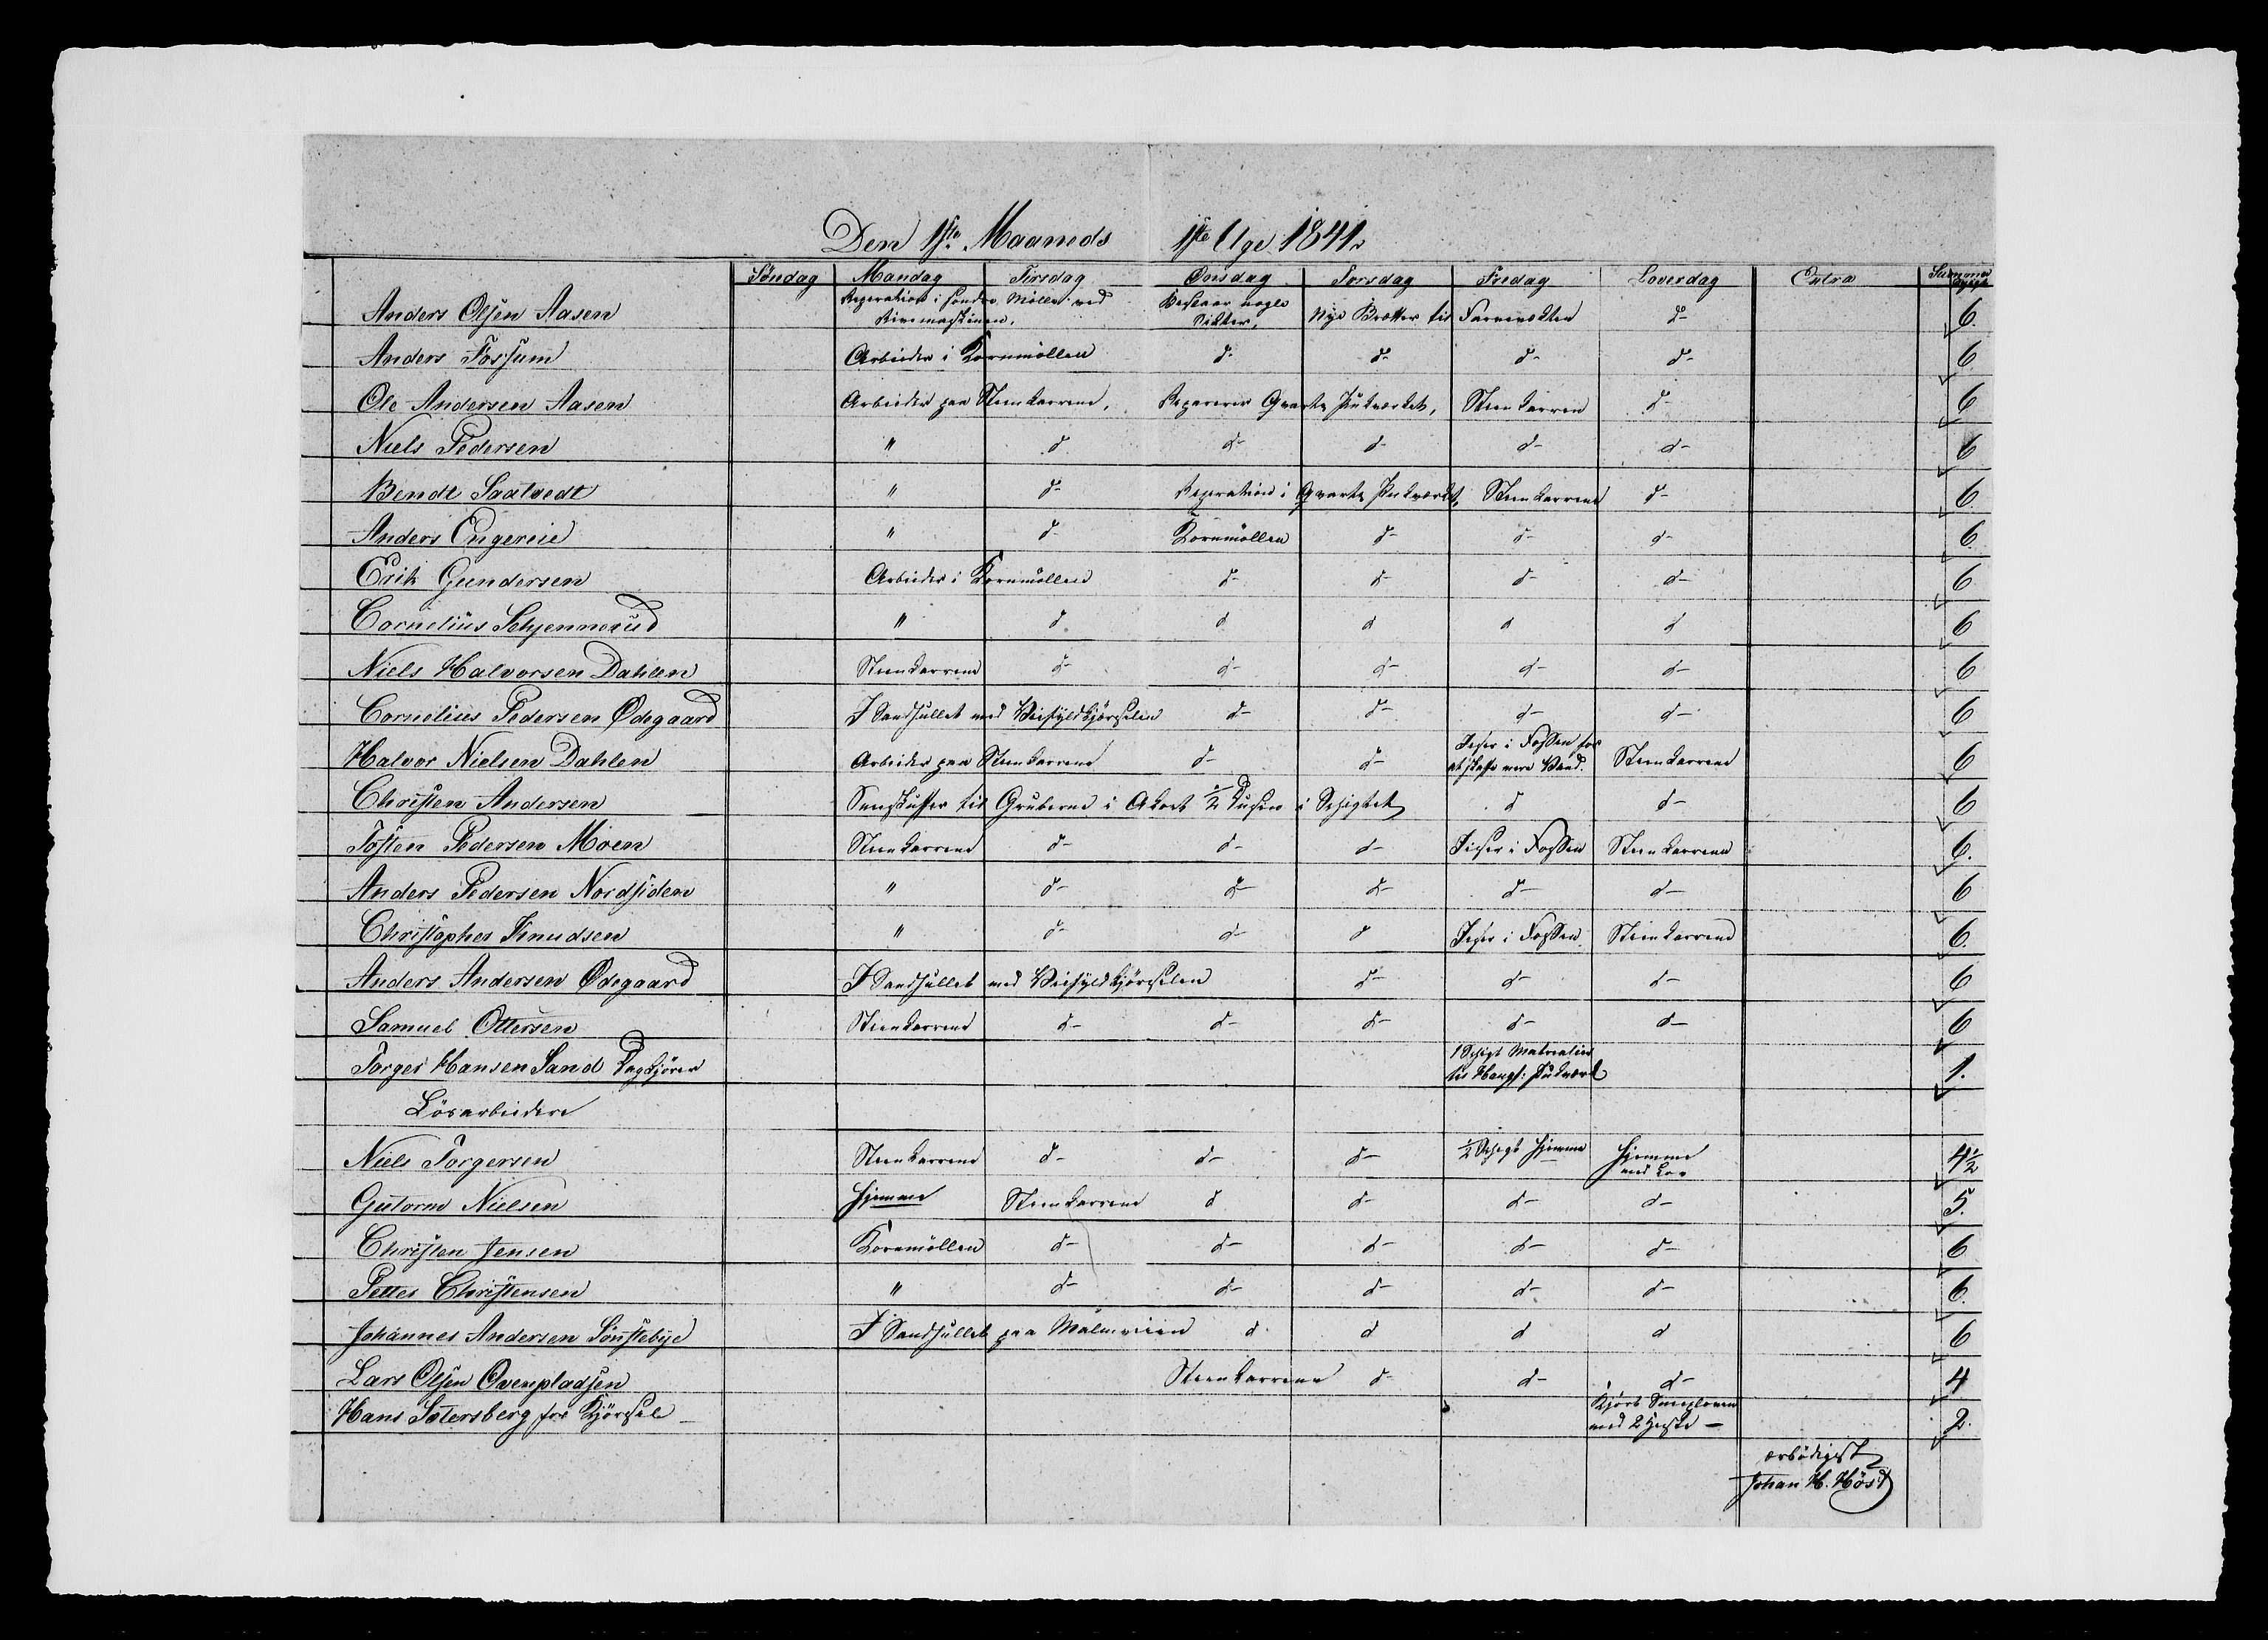 Den 1ste Maaneds 1ste Uge 1841.
Söndag Mandag Tirsdag Onsdag Torsdag Fredag Loverdag Extra Summa
Anders Olsen Aasen Reperation i söndre Mölle ved Rivemaskinen. Beslaar nogle Sikter, Nye Bretter til d- 6.
Anders Fossum Arbeider i Kornmöllen d- d- d- d- 6
Ole Andersen Aasen Arbeider paa Steenkarrene, Reparerer Qvarts Pukverket, Steenkarren d- 6
Niels Pedersen " d d- d- d- d- 6
Bendt Saatvedt " d- Reperation i Qvarts Pukverket, Steenkarrene d- 6.
Anders Engereie " d- Kornmöllen d- d- d- 6.
Erik Gundersen Arbeider i Kornmöllen d- d- d- d- 6
Cornelius Schjennerud " d d d d d 6
Niels Halvorsen Dahlen Steenkarrene d- d- d- d- d- 6
Cornelius Pedersen Ødegaard I Sandhullet med Veifyldkjörselen d- d- d- d- 6
Halvor Nielsen Dahlen Arbeider paa Steenkarrene d- d- i Fossen for at skaffe mere Vand. Steenkarrene 6
Christen Andersen til Gruberne i Akort 1/2 Dusin i Schigtet d d- 6
Tosten Pedersen Moen Steenkarrene d- d- d- i Fossen Steenkarrene 6.
Anders Pedersen Nordsiden " d- d- d- d- d- 6
Christopher Knudsen " d- d- d i Fossen Steenkarrene 6.
Anders Andersen Ødegaard I Sandhullet med Veifyldkjörselen d- d- d- 6
Samuel Ottersen Steenkarrene d- d- d- d- d- 6
Torger Hansen Sand Dagkjörer 1 Schigt Materialier til Haugs: Pukverk 1.
Lösarbeidere
Niels Torgersen Steenkarrene d- d- d- 1/2 Schigt hjemme hjemme med Lov 4 1/2
Gutorm Nielsen hjemme Steenkarrene d d- d- d- 5.
Christen Jensen Kornmöllen d- d- d- d- d- 6
Petter Christensen " d- d- d- d- d- 6.
Johannes Andersen Sönstebye I Sandhullet paa Malmveien d. d d d 6
Lars Olsen Overnpladsen Steenkarrene d- d- d- 4
Hans Sotersberg for Kjörsel - Kjört Sneeplouen med 2 Heste - 2.
ærbödigst
Johan H. Höst